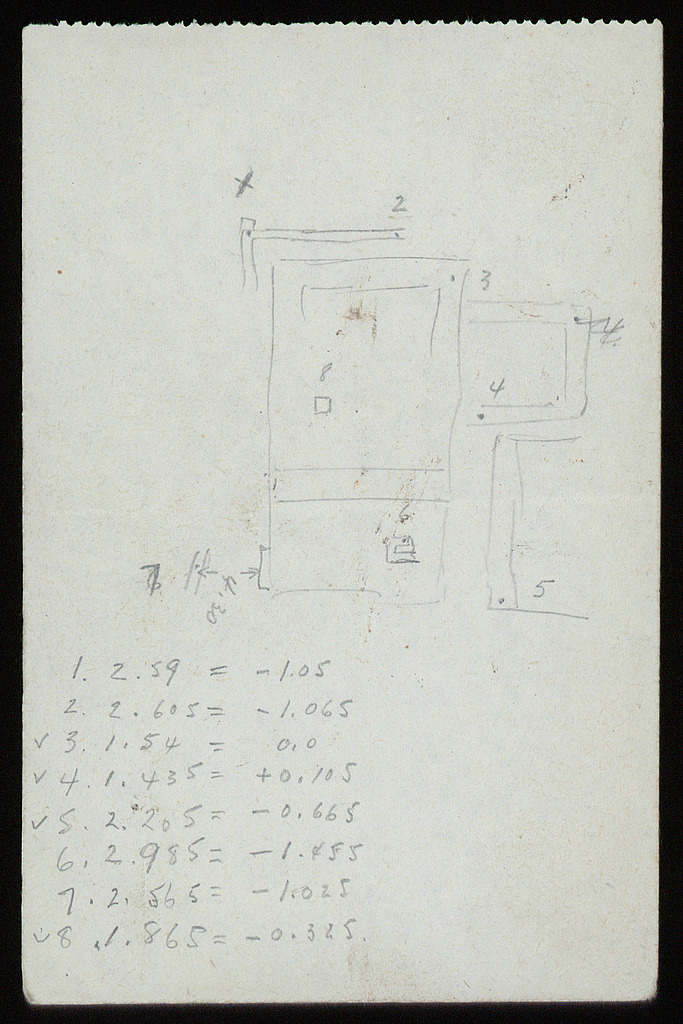 1
2
3
4
8
4
6
7
4.30
5
1. 2.59 = -1.05
2. 2.605 = -1.065
✓ 3. 1.54 = 0.0
✓ 4. 1.435 = +0.105
✓ 5. 2.205 = -0.665
6. 2.985 = -1.455
7. 2.565 = -1.025
✓ 8. 1.865 = -0.325.